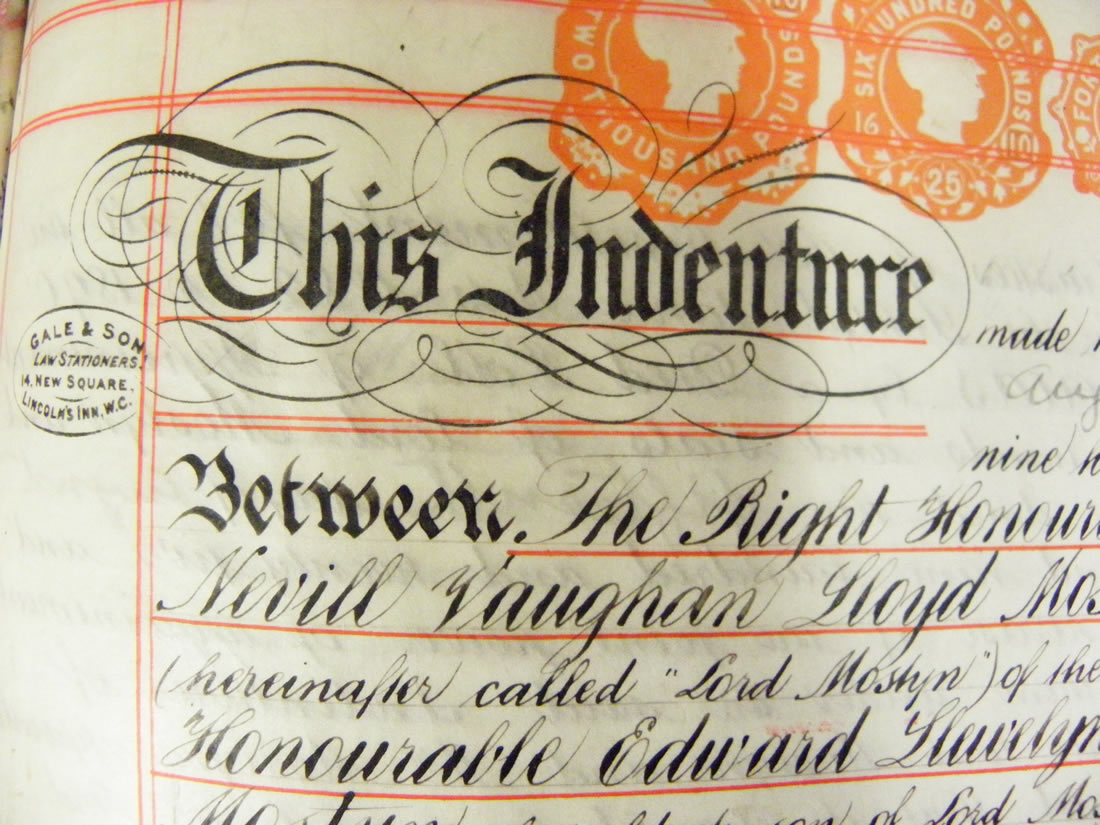 TWO THOUSAND POUNDS
SIX HUNDRED POUNDS
16
25
This Indenture
made
GALE & SON,
LAW STATIONERS,
14, NEW SQUARE,
LINCOLN'S INN, W.C.
nine h
Between The Right Honour
Nevill Vaughan Lloyd Mos
(hereinafter called "Lord Mostyn") of the
Honourable Edward Llewelyn
Mostyn son of Lord Mos